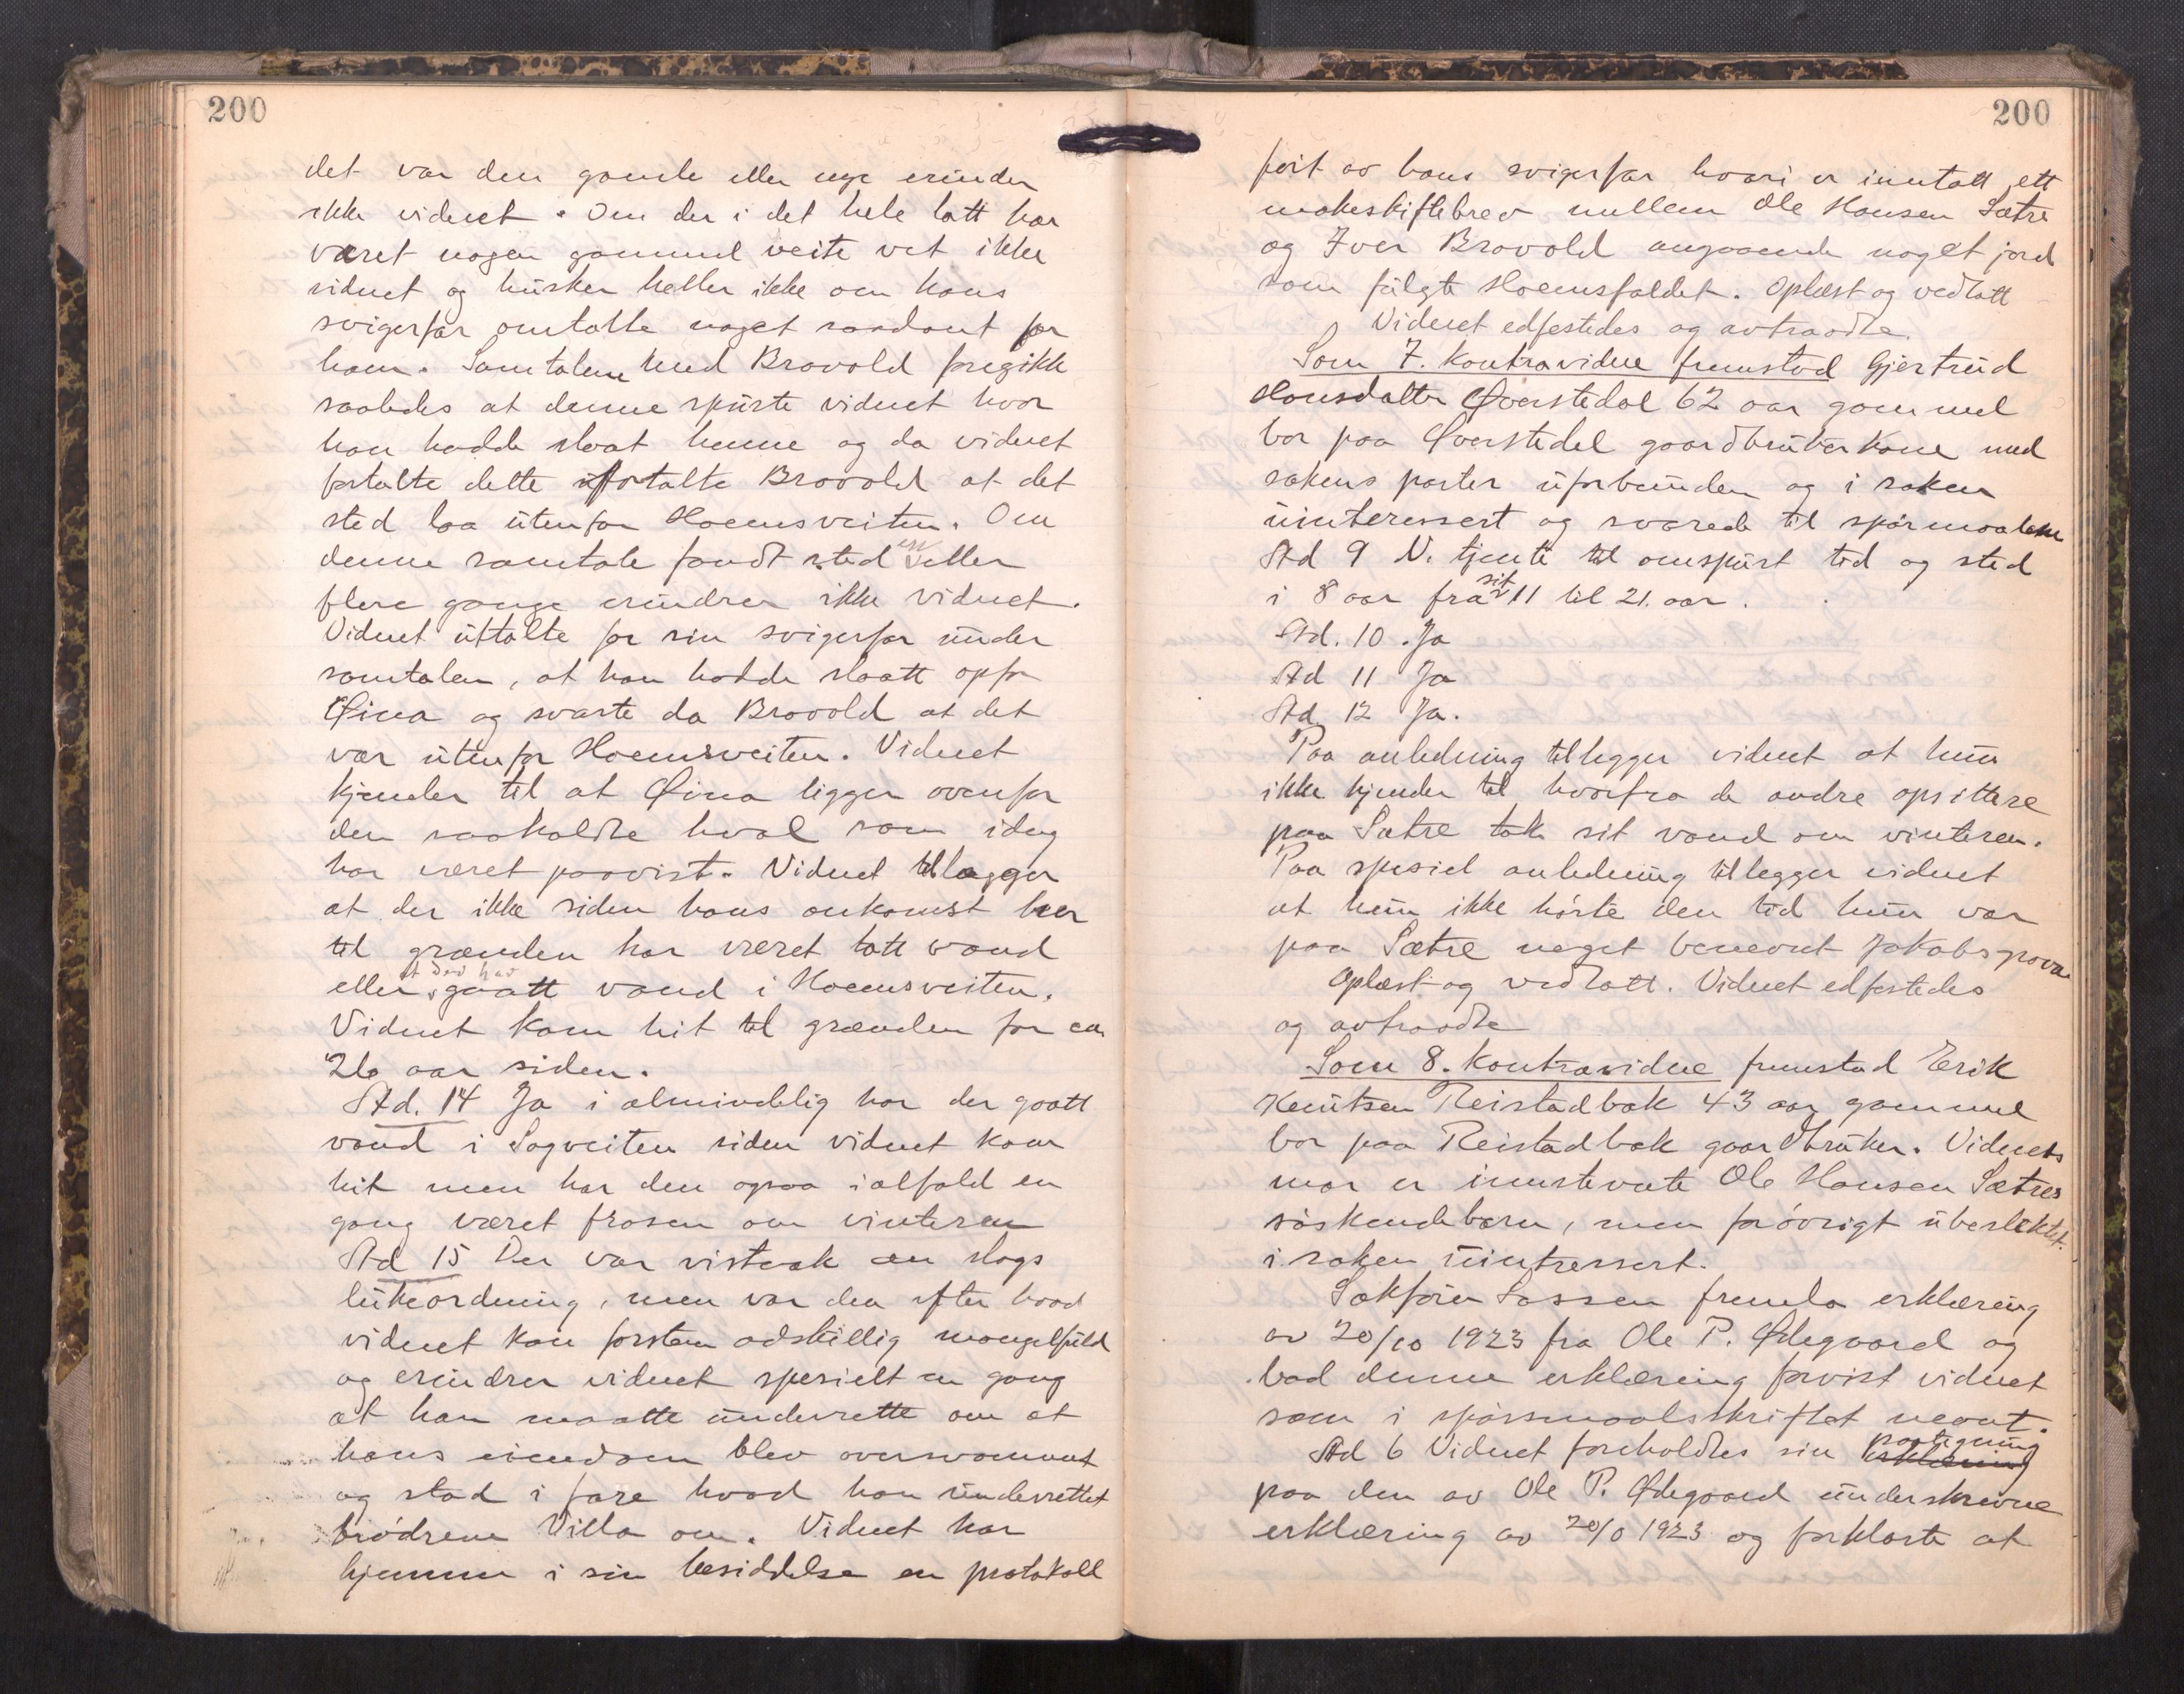 200
det var den gamle eller nye erindrer
ikke vidnet. Om der i det hele tatt har
været nogen gammel veite vet ikke
vidnet og husker heller ikke om hans
svigerfar omtalte noget saadant for
ham. Samtalen med Brovold foregikk
saaledes at denne spurte vidnet hvor
han hadde slaat henne og da vidnet
fortalte dette fortalte Brovold at det
sted laa utenfor Hoemsveiten. Om
denne samtale fandt sted en eller
flere gange erindrer ikke vidnet.
Vidnet uttalte for sin svigerfar under
samtalen, at han hadde slaatt opfor
Øina og svarte da Brovold at det
var utenfor Hoemsveiten. Vidnet
kjender til at Øina ligger ovenfor
den saakaldte hval som idag
har været paavist. Vidnet tillægger
at der ikke siden hans ankomst her
til grænden har været tatt vand
eller at der har gaatt vand i Hoemsveiten.
Vidnet kom hit til grænden for ca
26 aar siden.
Ad. 14 Ja i almindelig har der gaatt
vand i Sagveiten siden vidnet kom
hit men har den ogsaa ialfald en
gang været frosen om vinteren
Ad 15 Der var vistnok en slags
lukeordning, men var den efter hvad
vidnet kan forstaa adskillig mangelfuld
og erindrer vidnet spesielt en gang
at han maatte underrette om at
hans eiendom blev oversvømmet
og stod i fare hvad han underrettet
brødrene Villa om. Vidnet har
hjemme i sin besiddelse en protokoll
200
ført av hans svigerfar hvori er inntatt ett
makeskiftebrev mellem Ole Hansen Sætre
og Iver Brovold angaaende noget jord
som fulgte Hoemsfaldet. Oplæst og vedtatt
Vidnet edfestedes og avtraadte.
Som 7. kontravidne fremstod Gjertrud
Hansdatter Øverstedal 62 aar gammel
bor paa Øverstedal gaardbrukerkone med
sakens parter uforbunden og i saken
uinteressert og svarede til spørmaalene
Ad 9 V. tjente til omspurt tid og sted
i 8 aar fra sit 11 til 21. aar.
Ad. 10. Ja
Ad 11 Ja
Ad 12 Ja.
Paa anledning tillegger vidnet at hun
ikke kjender til hvorfra de andre opsittere
paa Sætre tok sit vand om vinteren.
Paa spesiel anledning tillegger vidnet
at hun ikke hørte den tid hun var
paa Sætre noget benevnt Jakobsgrova
Oplæst og vedtatt. Vidnet edfestedes
og avtraadte
Som 8. kontravidne fremstod Erik
Knutsen Reistadbak 43 aar gammel
bor paa Reistadbak gaardbruker. Vidnets
mor er innstevnte Ole Hansen Sætres
søskendebarn, men forøvrigt ubeslektet.
i saken uintressert.
Sakfører Sassen fremla erklæring
av 20/10 1923 fra Ole P. Ødegaard og
bad denne erklæring forvist vidnet
som i spørsmaalsskriftet nevnt.
Ad 6 Vidnet foreholdtes sin erklæring paategning
paa den av Ole P. Ødegaard underskrevne
erklæring av 20/0 1923 og forklarte at